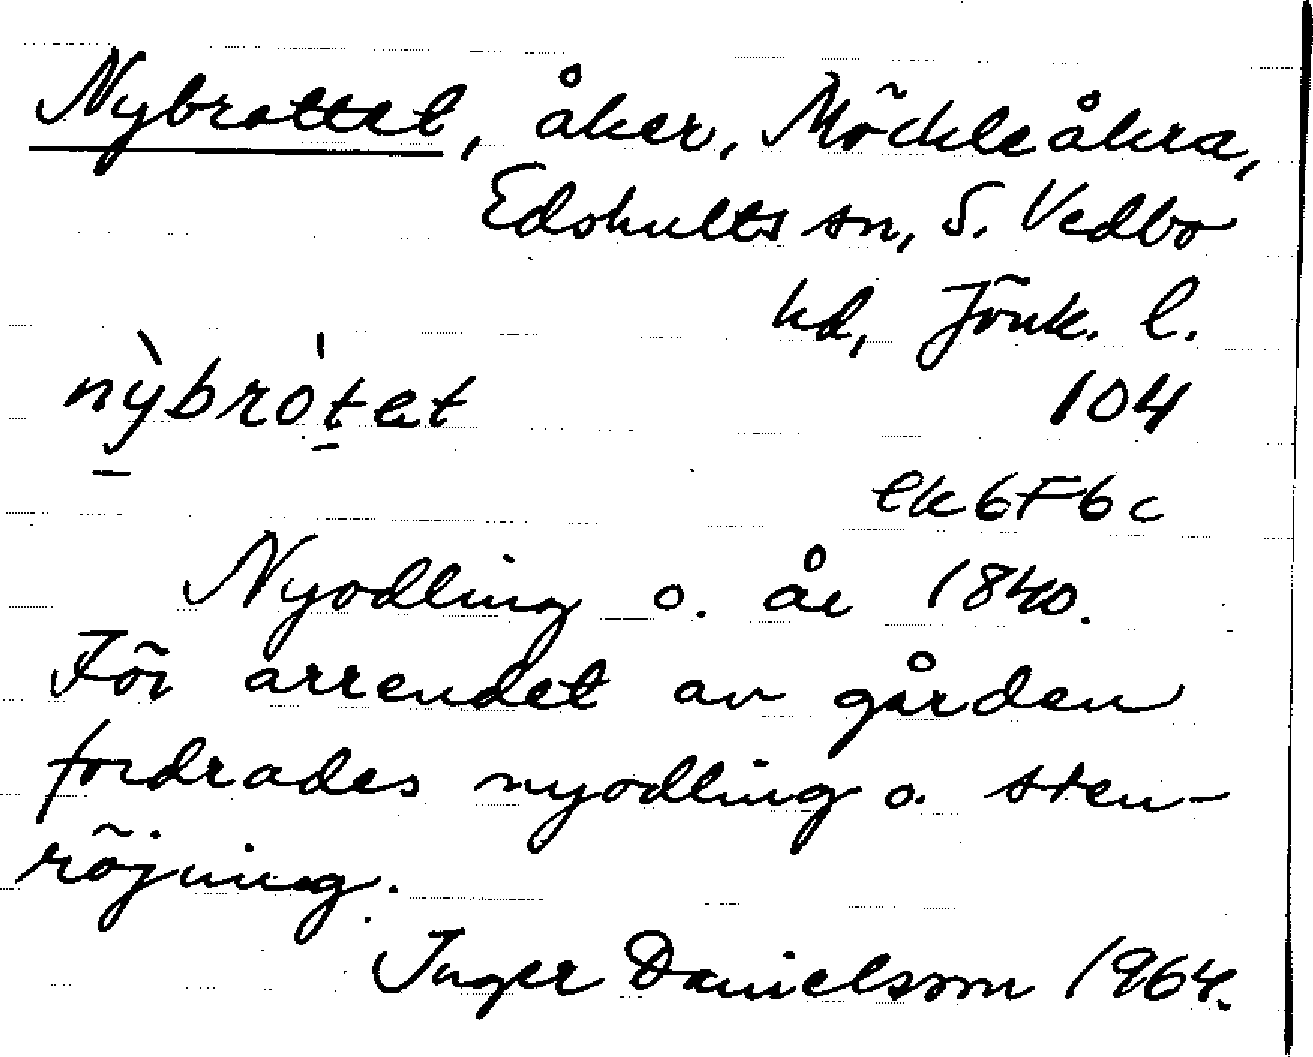 Nybrottet, åker, Möckleåkra,
Edshults sn, S. Vedbo
hd, Jönk. l.
nỳbrótet 104
ek 6F6c
Nyodling o. år 1840.
För arrendet av gården
fordrades nyodling o. sten-
röjning.
Inger Danielsson 1964.